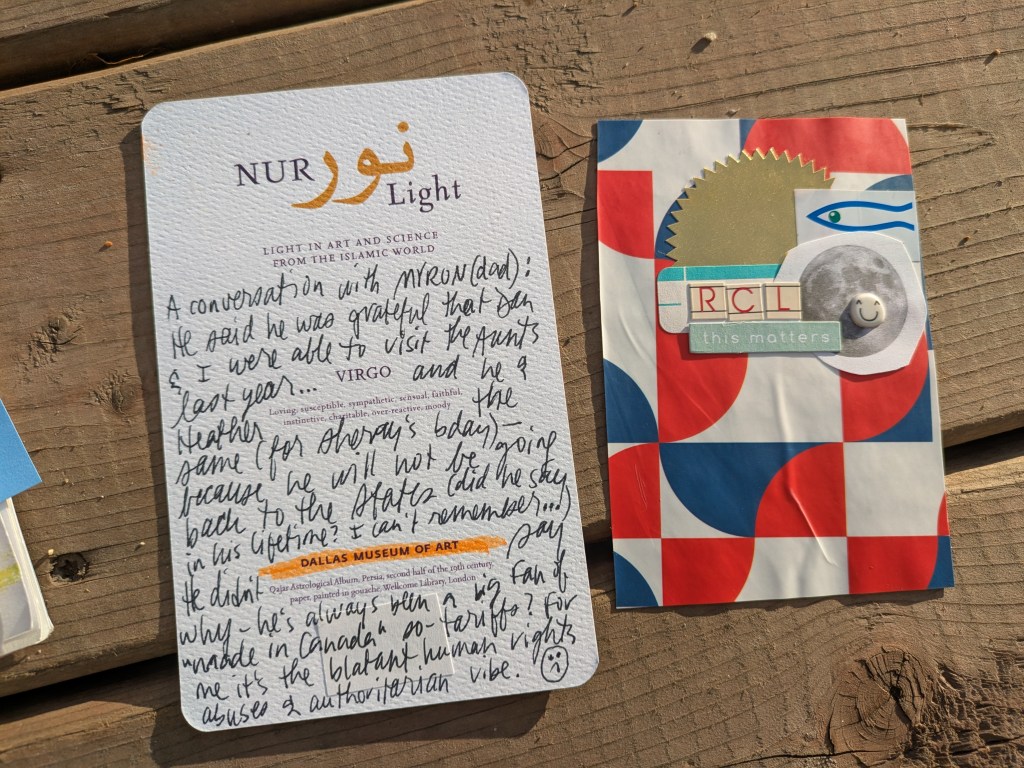 NUR نور Light
LIGHT IN ART AND SCIENCE
FROM THE ISLAMIC WORLD
A conversation with MYRON (dad):
He said he was grateful that Dan
& I were able to visit the Aunts
last year... VIRGO and he &
Loving, susceptible, sympathetic, sensual, faithful,
instinctive, charitable, over-reactive, moody
Heather the
same (for Sheray's bday) —
because he will not be going
back to the States (did he say
in his lifetime? I can't remember...)
DALLAS MUSEUM OF ART
He didn't say
Qajar Astrological Album, Persia, second half of the 19th century,
paper, painted in gouache, Wellcome Library, London
why - he's always been a big fan of
"made in Canada" so - tariffs? For
me it's the blatant human rights
abuses & authoritarian vibe.
RCL
this matters